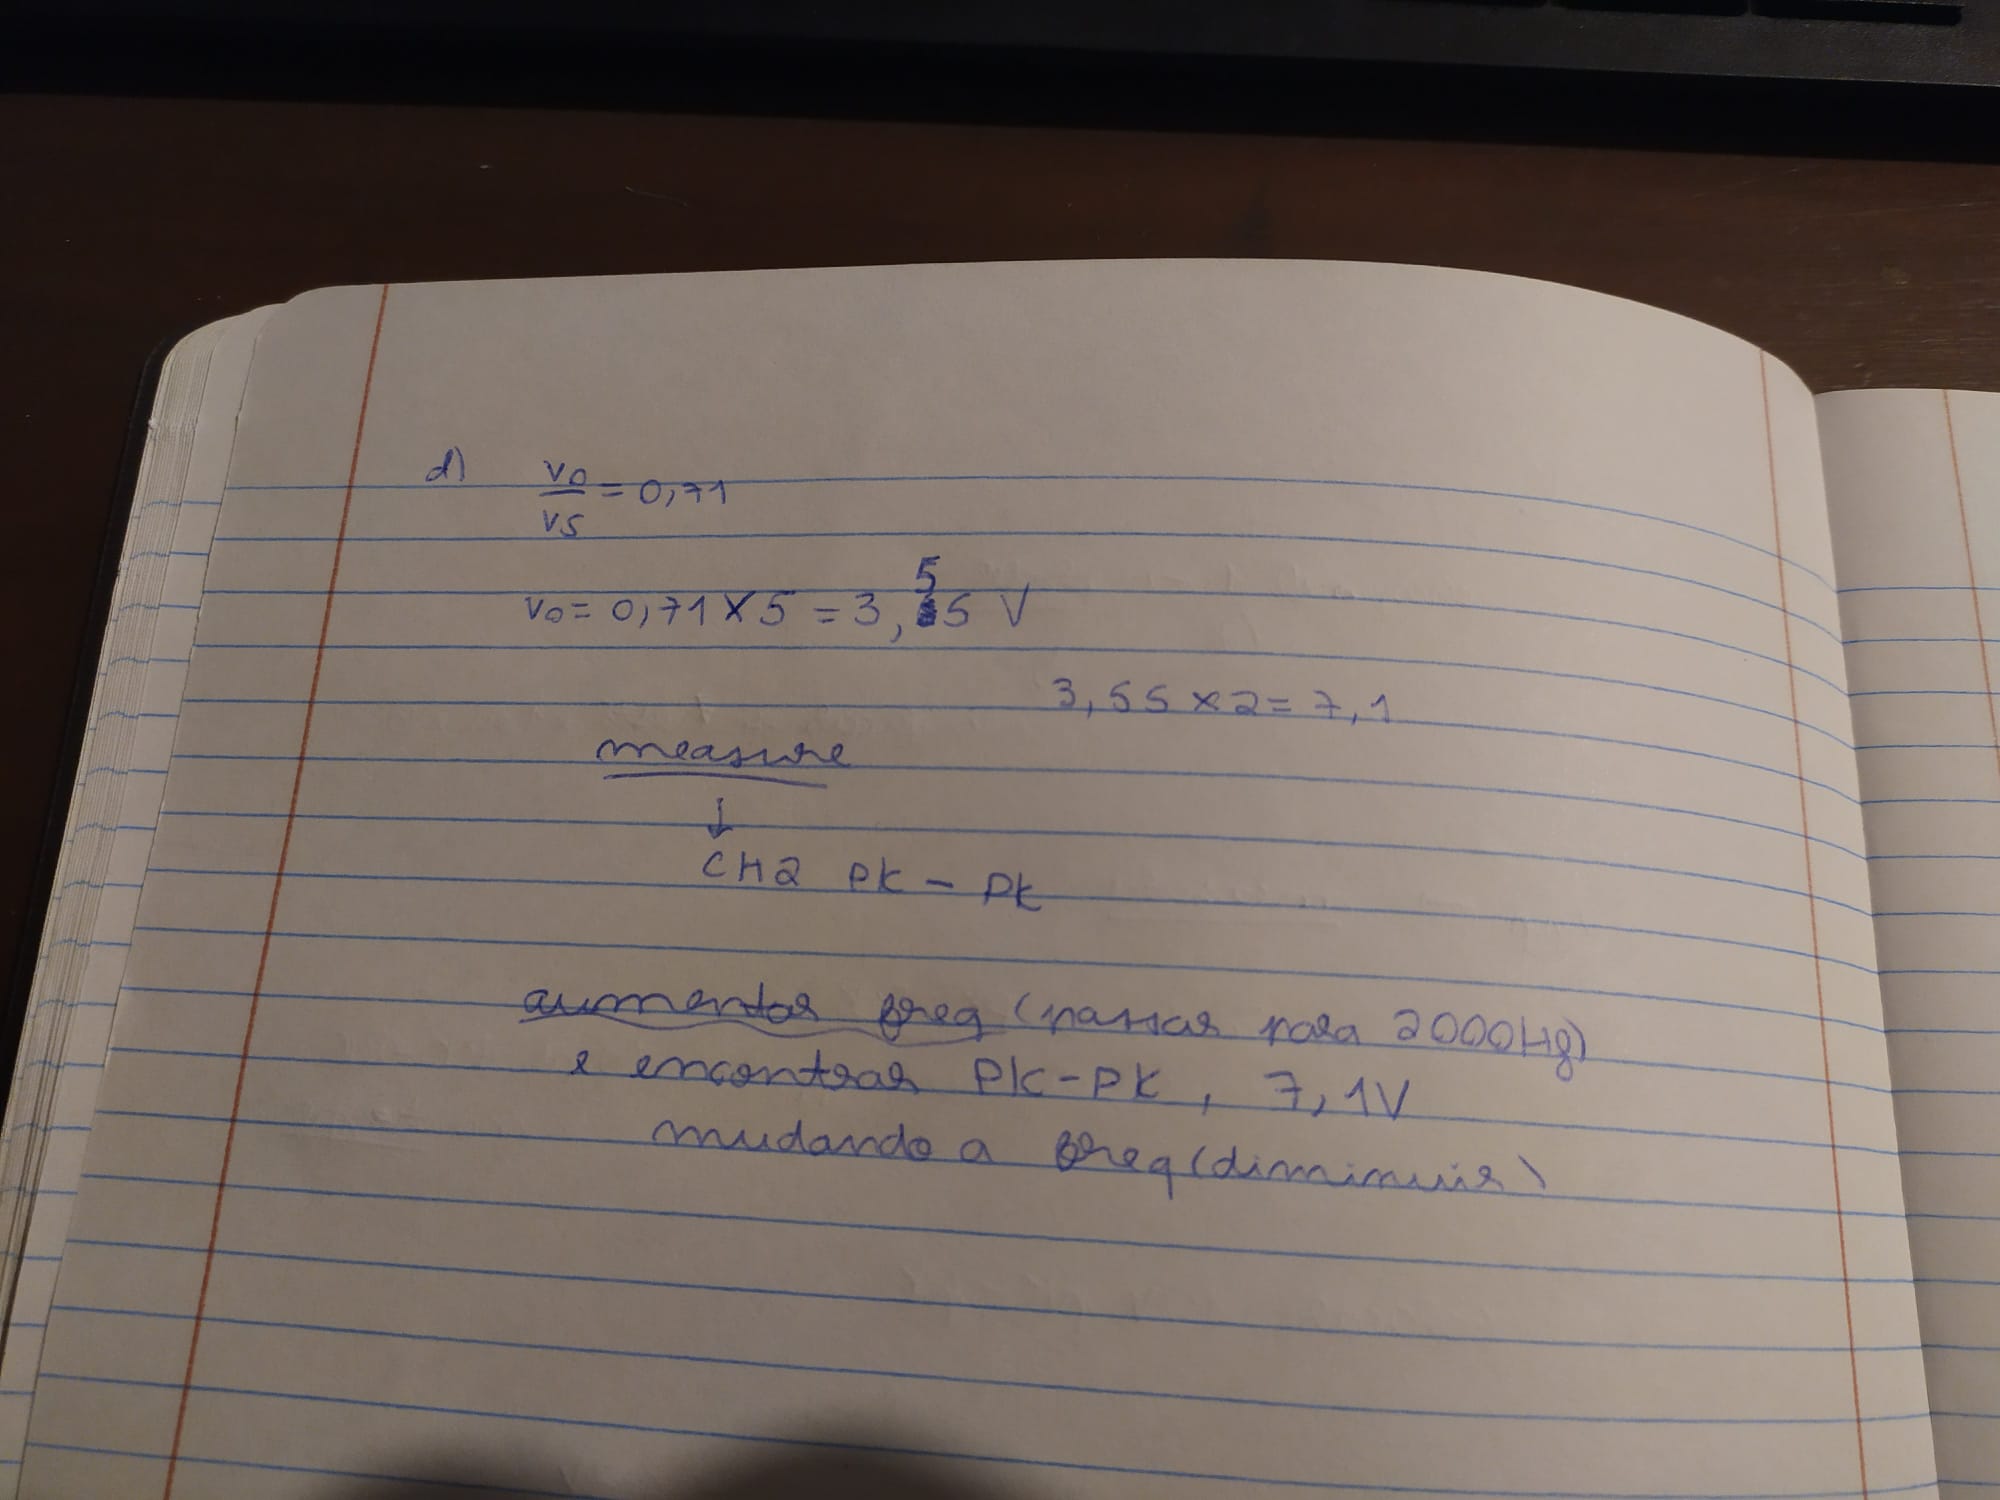 d) vo/vs = 0,71
vo = 0,71 X 5 = 3,55 V
3,55 x 2 = 7,1
measure
↓
CH2 PK - PK
aumentar freq (passar para 2000Hz)
e encontrar PK-PK, 7,1V
mudando a freq (diminuir)